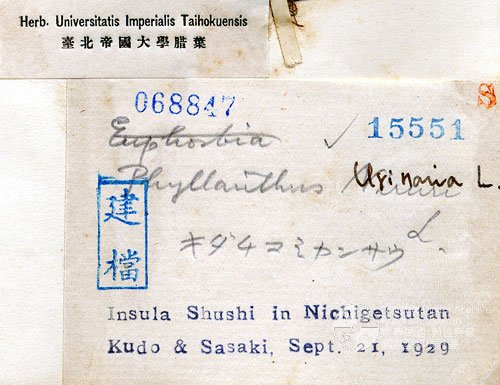 Herb. Universitatis Imperialis Taihokuensis
臺北帝國大學腊葉
068847
15551
Euphorbia ✓
Phyllanthus Urinaria L.
建檔
キダチコミカンサウ L.
Insula Shushi in Nichigetsutan
Kudo & Sasaki, Sept. 21, 1929